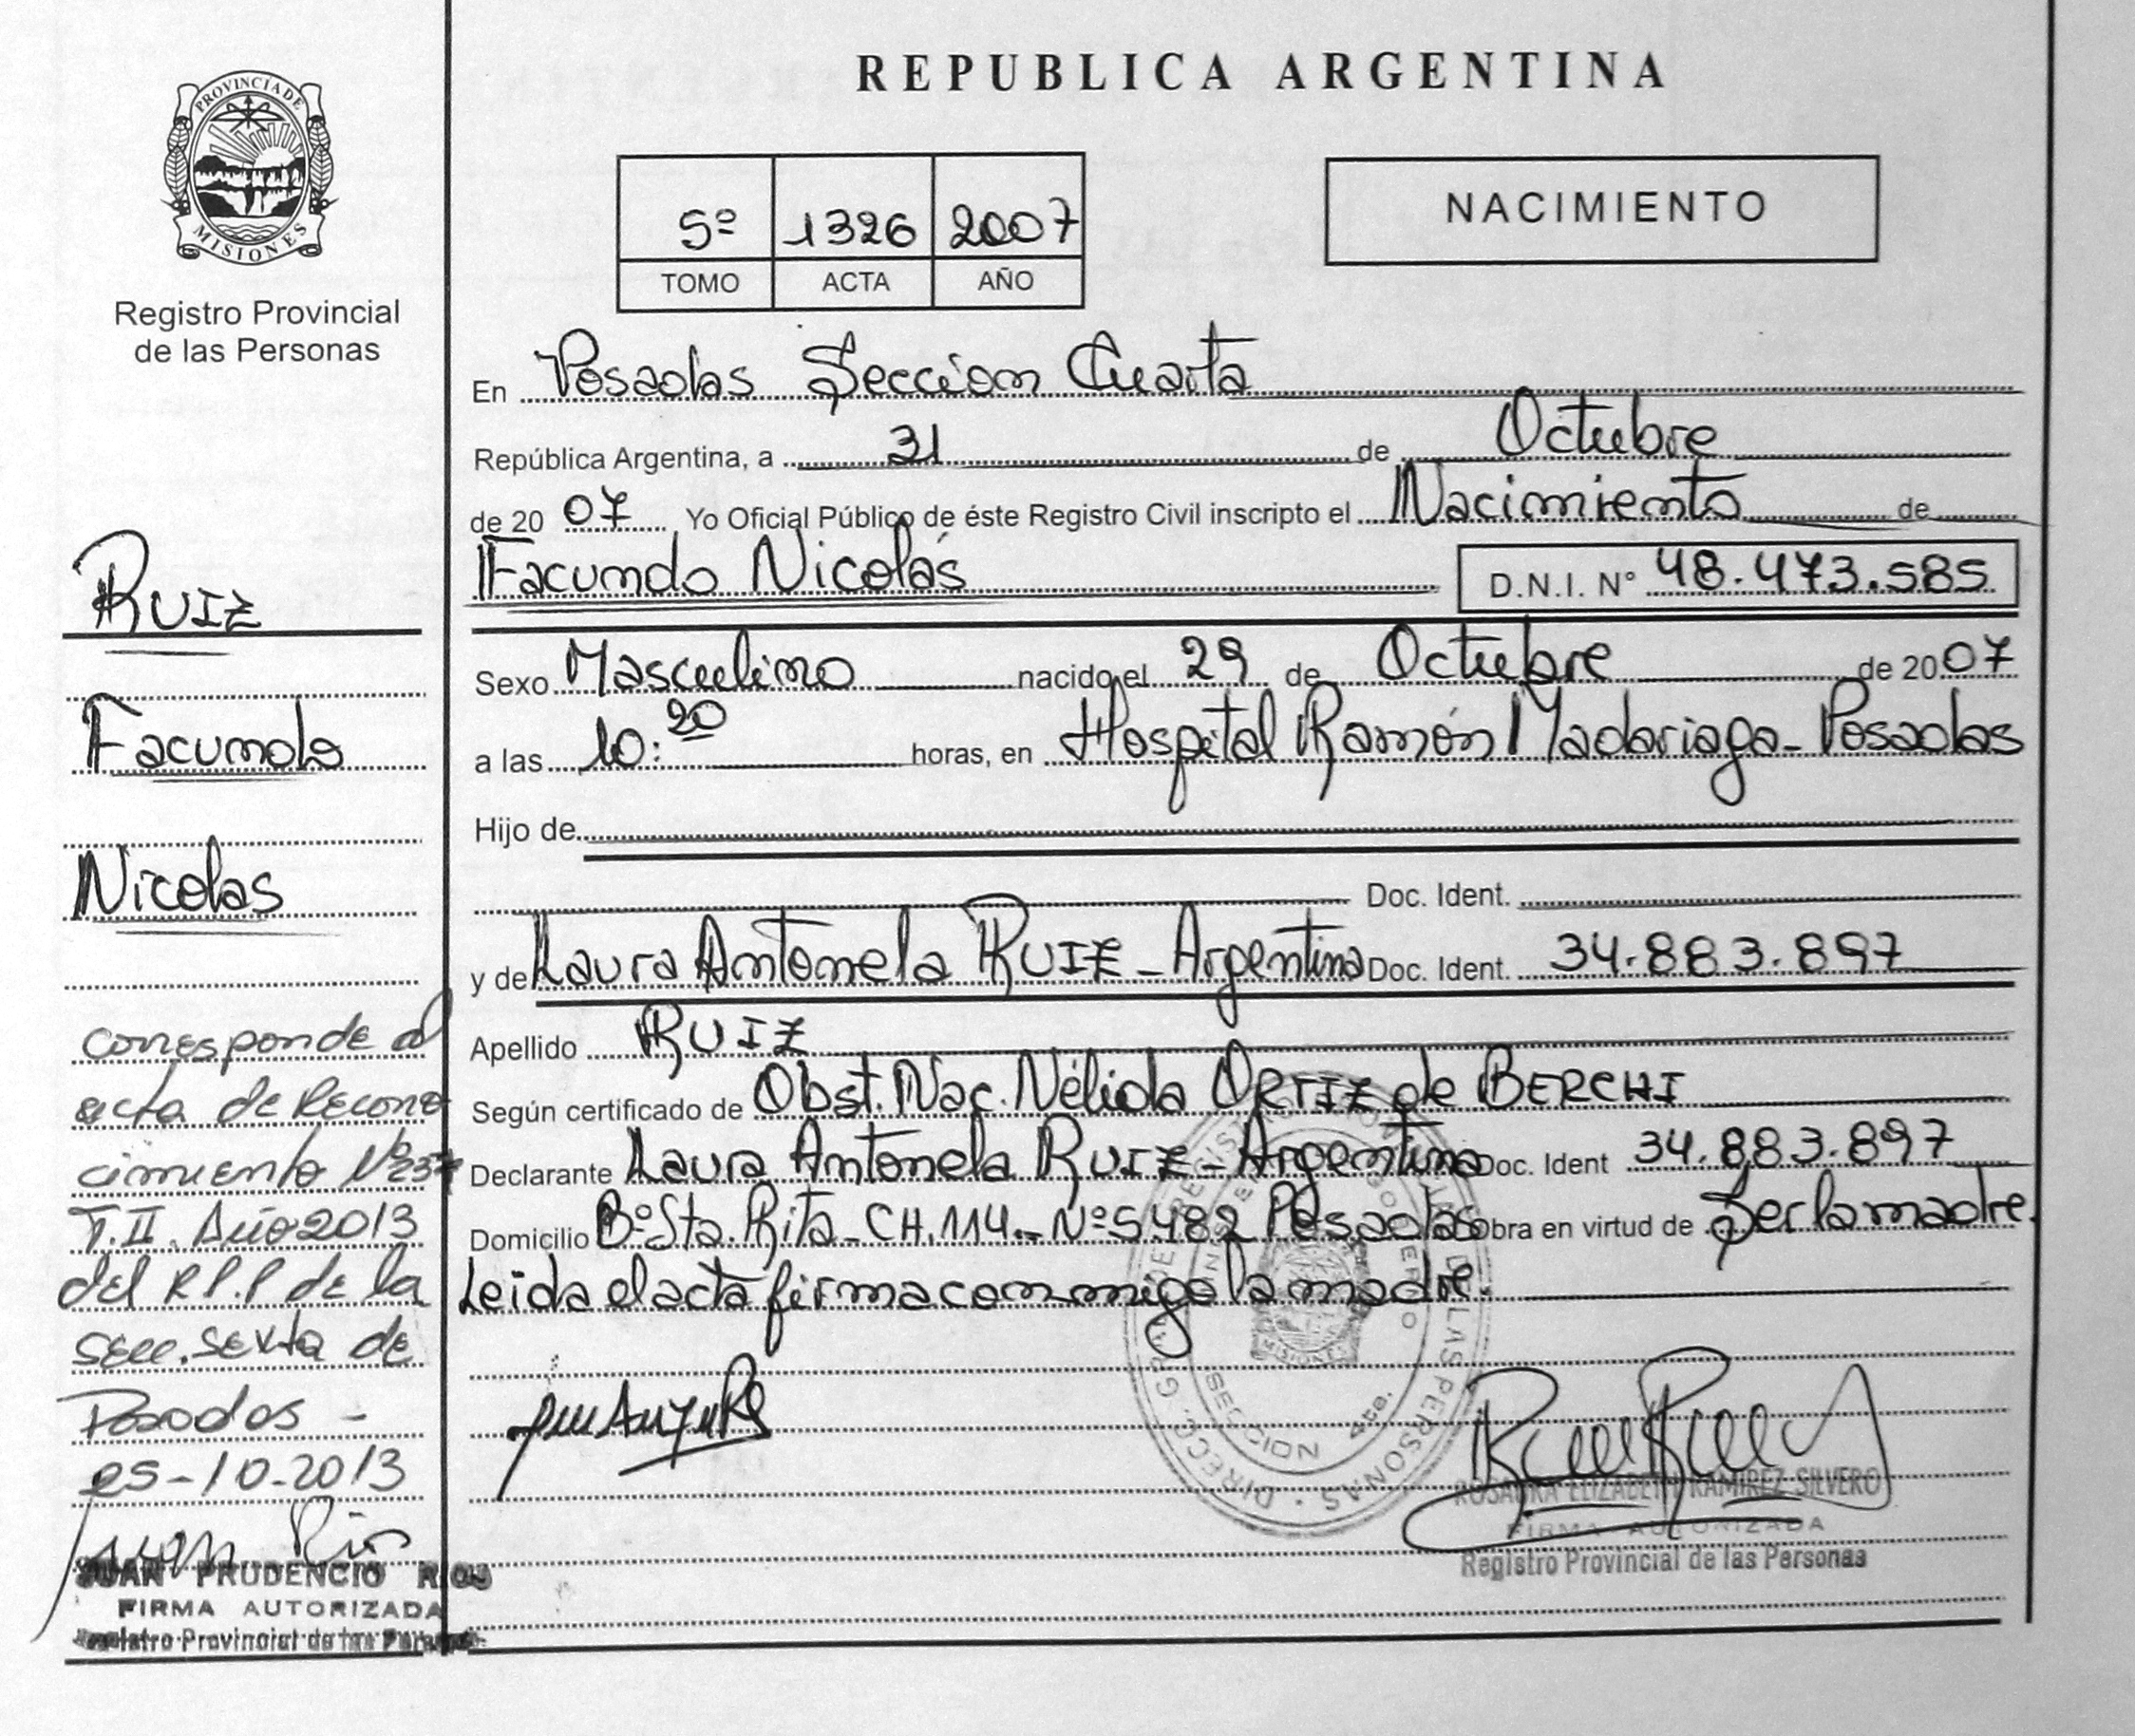 REPUBLICA ARGENTINA
PROVINCIA DE
MISIONES
Registro Provincial
de las Personas
5º 1326 2007
TOMO ACTA AÑO
NACIMIENTO
En Posadas Sección Cuarta
República Argentina, a 31 de Octubre
de 2007 Yo Oficial Público de éste Registro Civil inscripto el Nacimiento de
Facundo Nicolás D.N.I. Nº 48.473.585
Sexo Masculino nacido el 29 de Octubre de 2007
a las 10:20 horas, en Hospital Ramón Madariaga - Posadas
Hijo de
Doc. Ident.
y de Laura Antonela RUIZ - Argentina Doc. Ident. 34.883.897
Apellido RUIZ
Según certificado de Obst. Nac. Nélida ORTIZ de BERCHI
Declarante Laura Antonela RUIZ - Argentina Doc. Ident 34.883.897
Domicilio Bº Sta. Rita - CH. 114 - Nº 5.482 Posadas Obra en virtud de Ser la madre.
Leida el acta firma conmigo la madre.
ROSAURA ELIZABETH RAMIREZ SILVERO
FIRMA AUTORIZADA
Registro Provincial de las Personas
RUIZ
Facundo
Nicolas
corresponde al
acta de Recono
cimiento Nº 237
T. II. Año 2013
del R.P.P de la
Secc. Sexta de
Posadas -
25-10-2013
JUAN PRUDENCIO RIOS
FIRMA AUTORIZADA
Registro Provincial de las Personas